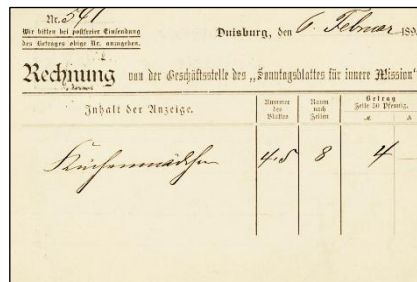 Nr. 541
Wir bitten bei postfreier Einsendung
des Betrages obige Nr. anzugeben.
Duisburg, den 6. Februar 189
Rechnung von der Geschäftsstelle des „Sonntagsblattes für innere Mission“
Inhalt der Anzeige. Nummer des Blattes Raum nach Zeilen Betrag Zeile 50 Pfennig.
Küchenmädchen 4.5 8 4